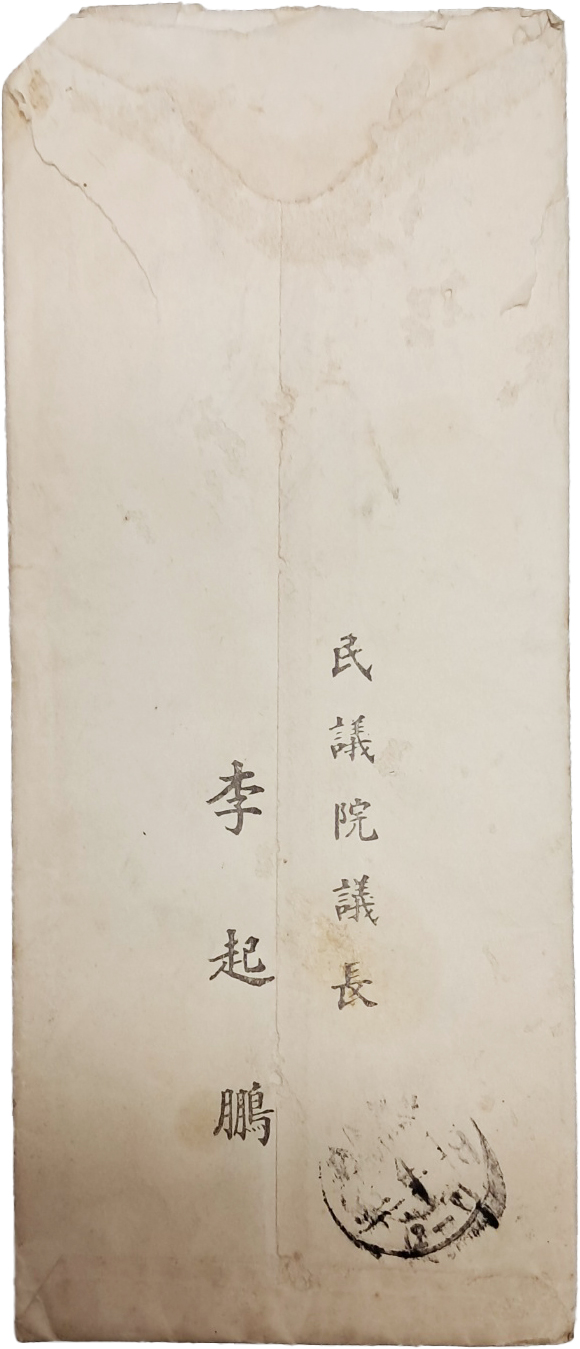 民議院議長
李起鵬